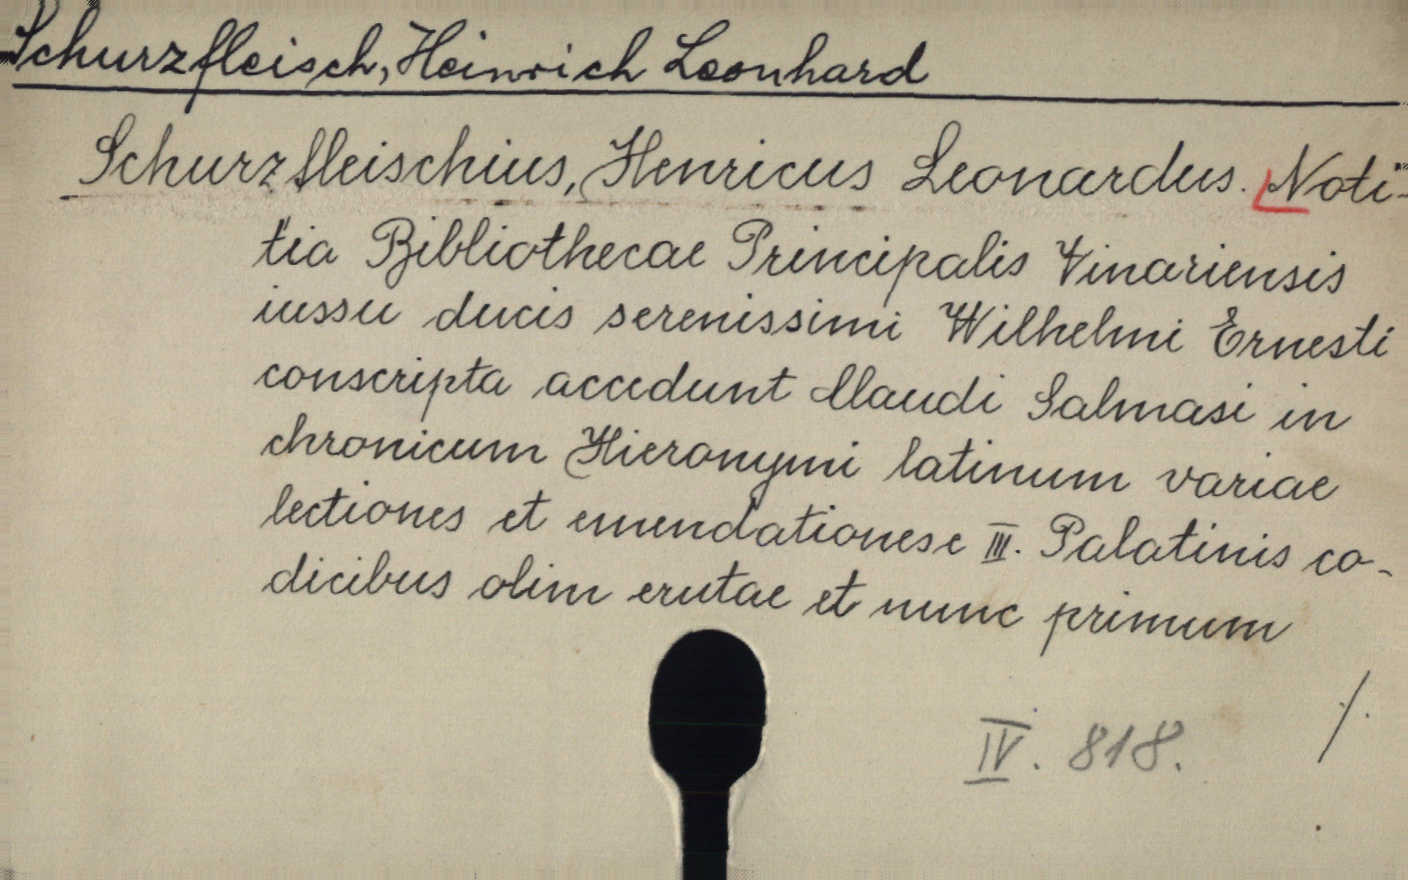 Schurzfleisch, Heinrich Leonhard
Schurzfleischius, Henricus Leonardus. Noti-
tia Bibliothecae Principalis Vinariensis
iussu ducis serenissimi Wilhelmi Ernesti
conscripta accedunt Claudi Salmasi in
chronicum Hieronymi latinum variae
lectiones et emendationes e III. Palatinis co-
dicibus olim erutae et nunc primum
IV. 818.
./.